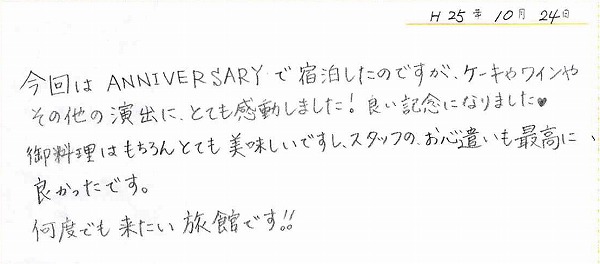 H 25年 10月 24日
今回は ANNIVERSARYで宿泊したのですが、ケーキやワインや
その他の演出に、とても感動しました！良い記念になりました♥
御料理はもちろんとても美味しいですし、スタッフの、お心遣いも最高に、
良かったです。
何度でも来たい旅館です!!